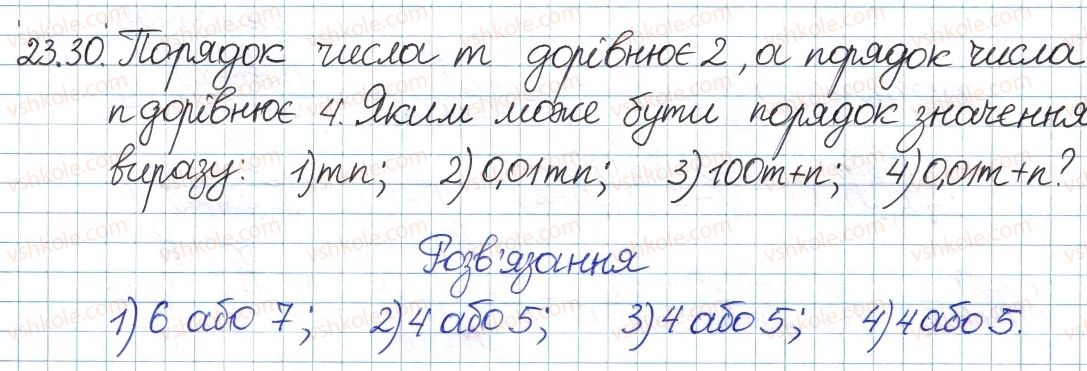 23.30. Порядок числа m дорівнює 2, а порядок числа
n дорівнює 4. Яким може бути порядок значення
виразу: 1) mn; 2) 0,01mn; 3) 100m+n; 4) 0,01m+n?
Розв'язання
1) 6 або 7; 2) 4 або 5; 3) 4 або 5; 4) 4 або 5.